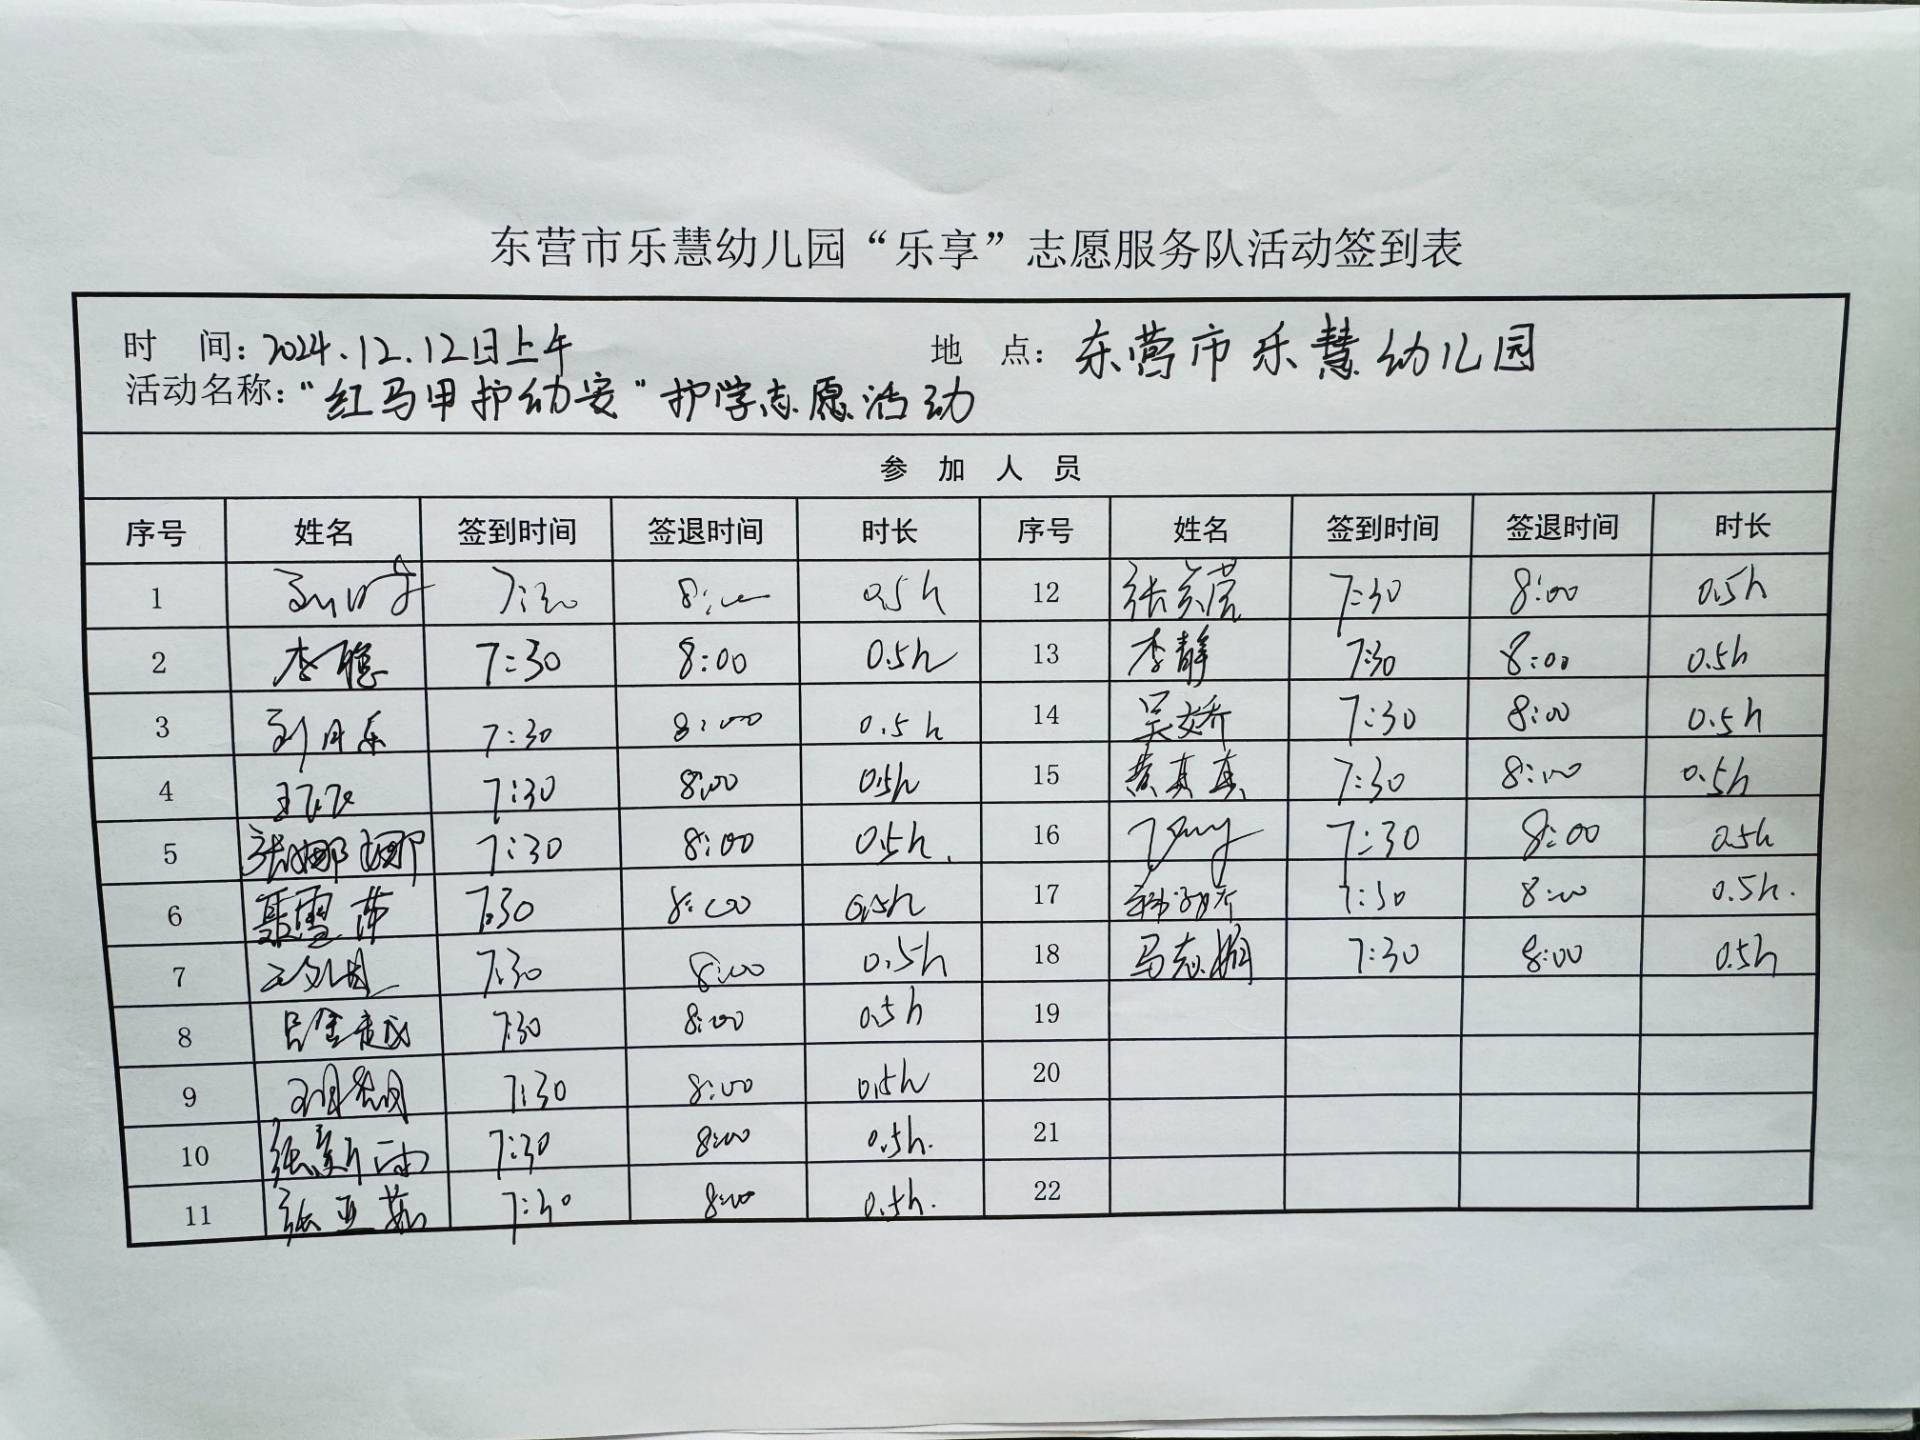 东营市乐慧幼儿园“乐享”志愿服务队活动签到表
时 间：2024.12.12日上午 地 点：东营市乐慧幼儿园
活动名称：“红马甲护幼安”护学志愿活动
参 加 人 员
序号 姓名 签到时间 签退时间 时长 序号 姓名 签到时间 签退时间 时长
1 7:30 8:00 0.5h 12 7:30 8:00 0.5h
2 李穗 7:30 8:00 0.5h 13 李静 7:30 8:00 0.5h
3 刘月乐 7:30 8:00 0.5h 14 吴娇 7:30 8:00 0.5h
4 7:30 8:00 0.5h 15 黄真真 7:30 8:00 0.5h
5 张娜娜 7:30 8:00 0.5h. 16 7:30 8:00 0.5h
6 聂雪莎 7:30 8:00 0.5h 17 7:30 8:00 0.5h.
7 7:30 8:00 0.5h 18 马志娟 7:30 8:00 0.5h
8 吕金越 7:30 8:00 0.5h 19
9 7:30 8:00 0.5h 20
10 张新雨 7:30 8:00 0.5h. 21
11 张亚茹 7:30 8:00 0.5h. 22